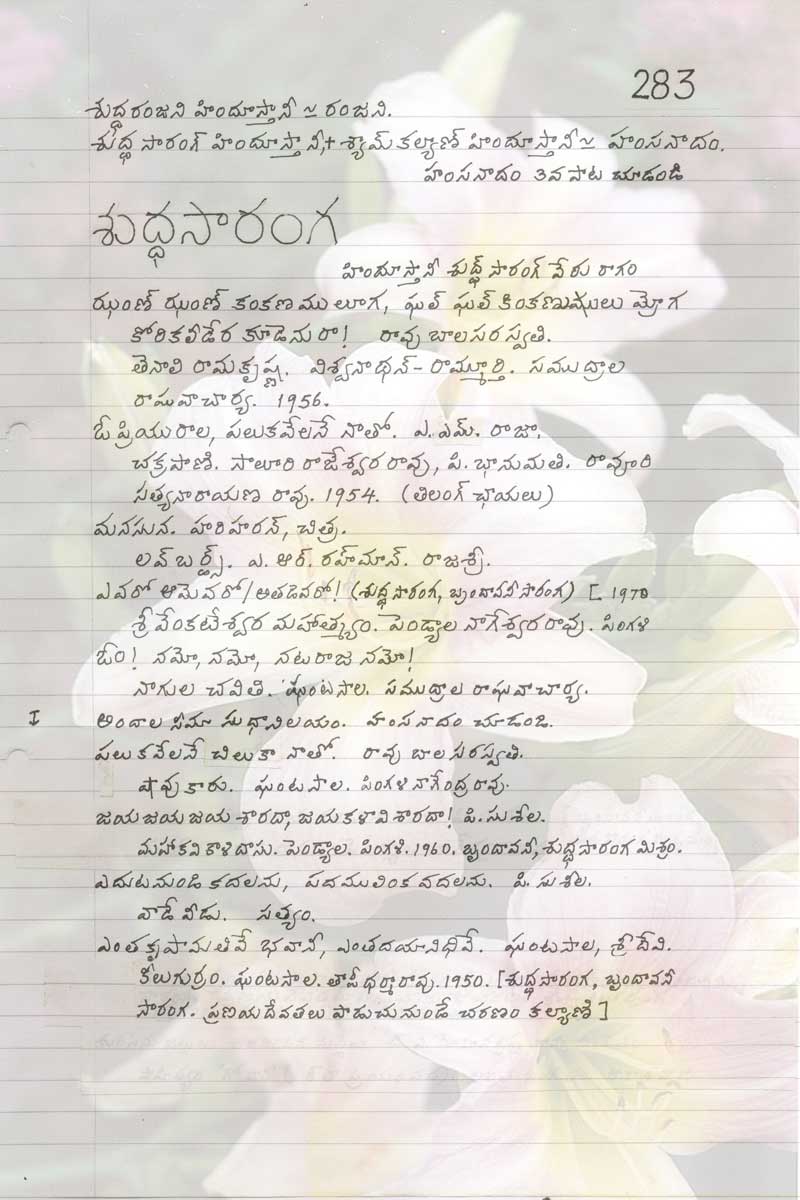 283
శుద్ధరంజని హిందూస్తానీ ≃ రంజని.
శుద్ధ సారంగ్ హిందూస్తానీ + శ్యామ్ కల్యాణ్ హిందూస్తానీ ≃ హంసనాదం.
హంసనాదం 3వ పాట చూడండి
శుద్ధసారంగ
హిందూస్తానీ శుద్ధ్ సారంగ్ వేరు రాగం
ఝంణ్ ఝంణ్ కంకణములూగ, ఘల్ ఘల్ కింకణుషులు మ్రోగ
కోరికలీడేర కూడెనురా! రావు బాలసరస్వతి.
తెనాలి రామకృష్ణ. విశ్వనాథన్-రామ్మూర్తి. సముద్రాల
రాఘవాచార్య. 1956.
ఓ ప్రియురాల, పలుకవేలనే నాతో. ఎ.ఎమ్. రాజా,
చక్రపాణి. సాలూరి రాజేశ్వరరావు, పి. భానుమతి. రావూరి
సత్యనారాయణ రావు. 1954. (తిలంగ్ ఛాయలు)
మనసున. హరిహరన్, చిత్ర.
లవ్ బర్డ్స్. ఎ. ఆర్. రహ్మాన్. రాజశ్రీ.
ఎవరో ఆమెవరో/అతడెవరో! (శుద్ధసారంగ, బృందావనీ సారంగ) [ 1970
శ్రీ వేంకటేశ్వర మహాత్మ్యం. పెండ్యాల నాగేశ్వరరావు. పింగళి
ఓం! నమో, నమో, నటరాజ నమో!
నాగుల చవితి. ఘంటసాల. సముద్రాల రాఘవాచార్య.
I అందాల సీమా సుధానిలయం. హంసనాదం చూడండి.
పలుకవేలనే చిలుకా నాతో. రావు బాలసరస్వతి.
షావుకారు. ఘంటసాల. పింగళి నాగేంద్రరావు.
జయ జయ జయ శారదా, జయ కళావి శారదా! పి. సుశీల.
మహాకవి కాళిదాసు. పెండ్యాల. పింగళి. 1960. బృందావనీ, శుద్ధసారంగ మిశ్రం.
ఎదుటనుండి కదలను, పదములింక వదలను. పి. సుశీల.
వాడే వీడు. సత్యం.
ఎంత కృపామతివే భవానీ, ఎంత దయానిధివే. ఘంటసాల, శ్రీదేవి.
కీలుగుర్రం. ఘంటసాల. తాపీ ధర్మారావు. 1950. [శుద్ధసారంగ, బృందావనీ
సారంగ. ప్రణయదేవతలు పాడుచునుండే చరణం కల్యాణి]